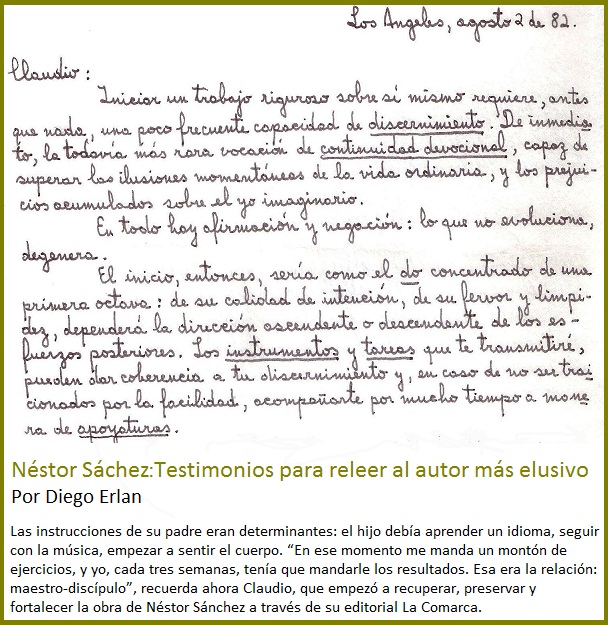 Los Angeles, agosto 2 de 82.
Claudio:
Iniciar un trabajo riguroso sobre sí mismo requiere, antes
que nada, una poco frecuente capacidad de discernimiento. De inmedia
to, la todavía más rara vocación de continuidad devocional, capaz de
superar las ilusiones momentáneas de la vida ordinaria, y los prejui-
cios acumulados sobre el yo imaginario.
En todo hay afirmación y negación: lo que no evoluciona,
degenera.
El inicio, entonces, sería como el do concentrado de una
primera octava: de su calidad de intención, de su fervor y limpi-
dez, dependerá la dirección ascendente o descendante de los es-
fuerzos posteriores. Los instrumentos y tareas que te transmitiré,
pueden dar coherencia a tu discernimiento y, en caso de no ser trai
cionados por la facilidad, acompañarte por mucho tiempo a mane
ra de apoyaturas.
Néstor Sáchez:Testimonios para releer al autor más elusivo
Por Diego Erlan
Las instrucciones de su padre eran determinantes: el hijo debía aprender un idioma, seguir
con la música, empezar a sentir el cuerpo. “En ese momento me manda un montón de
ejercicios, y yo, cada tres semanas, tenía que mandarle los resultados. Esa era la relación:
maestro-discípulo”, recuerda ahora Claudio, que empezó a recuperar, preservar y
fortalecer la obra de Néstor Sánchez a través de su editorial La Comarca.